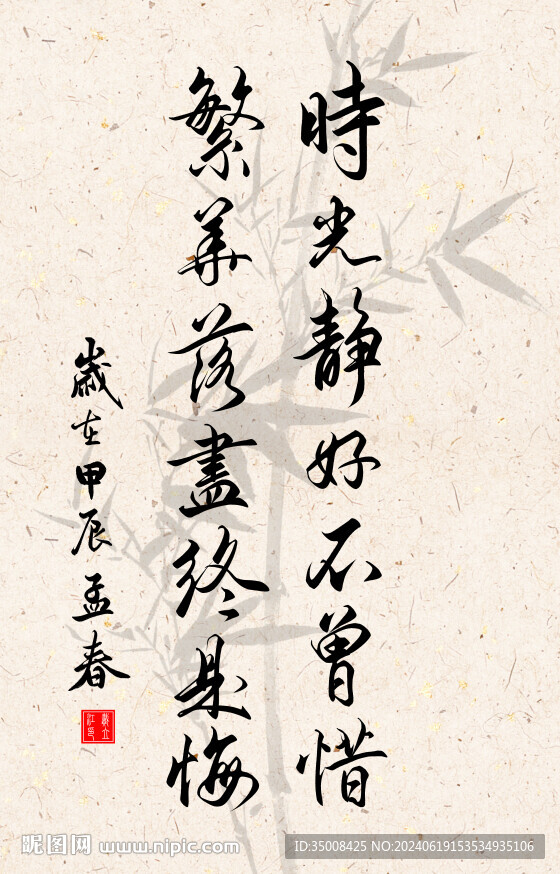 時光静好不曾惜
繁華落盡終是悔
歲在甲辰孟春
昵图网 www.nipic.com
ID:35008425 NO:20240619153534935106